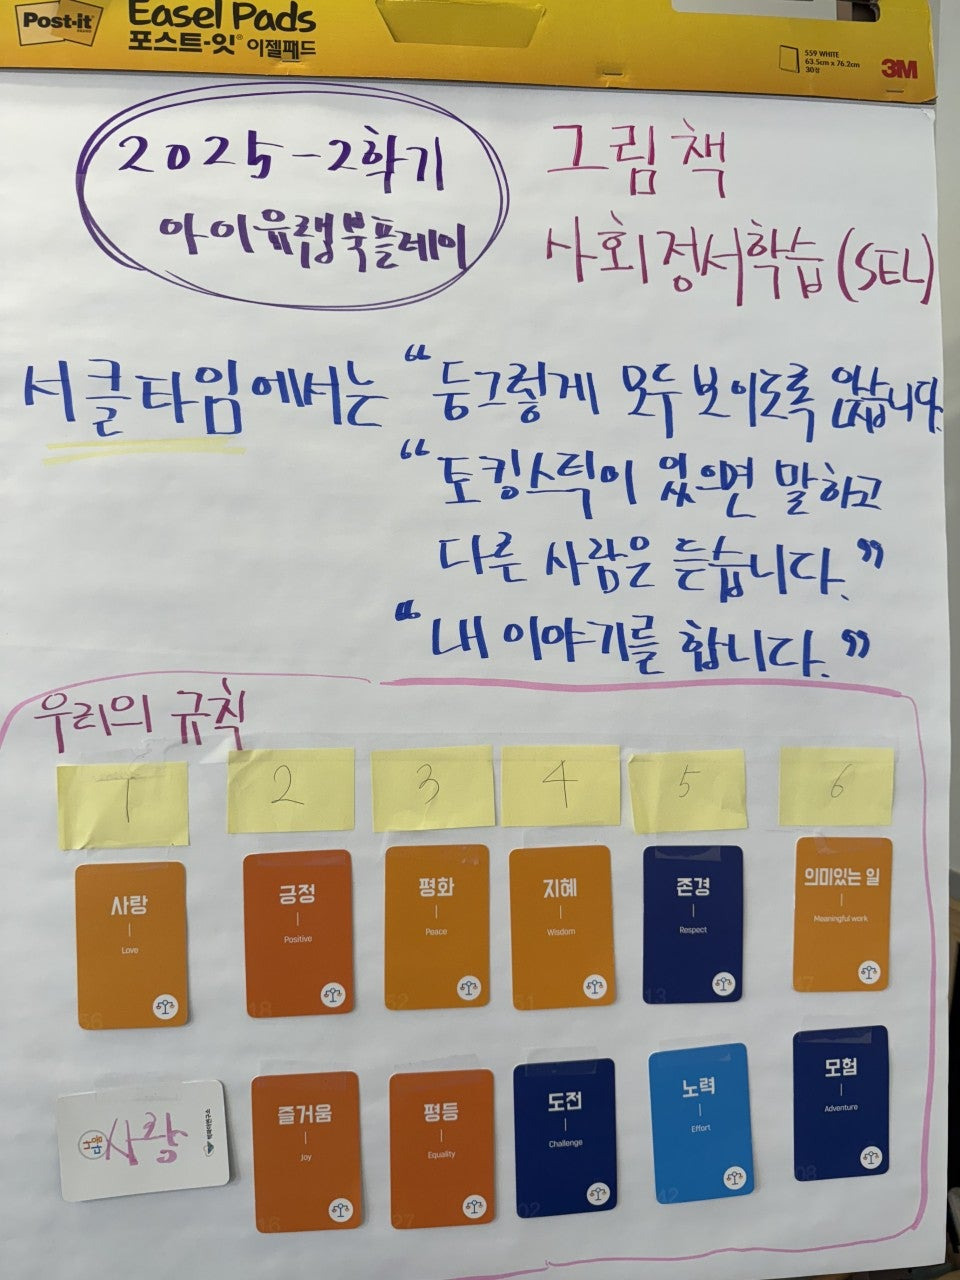 Post-it
Easel Pads
포스트-잇® 이젤패드
559 WHITE
63.5cm x 76.2cm
30장
3M
2025-2학기
아이유랩북플레이
그림책
사회정서학습(SEL)
서클타임에서는 “둥그렇게 모두 보이도록 앉습니다.
“토킹스틱이 있으면 말하고
다른 사람은 듣습니다.”
“내 이야기를 합니다.”
우리의 규칙
1 2 3 4 5 6
사랑 긍정 평화 지혜 존경 의미있는 일
Love Positive Peace Wisdom Respect Meaningful work
사랑 즐거움 평등 도전 노력 모험
Joy Equality Challenge Effort Adventure